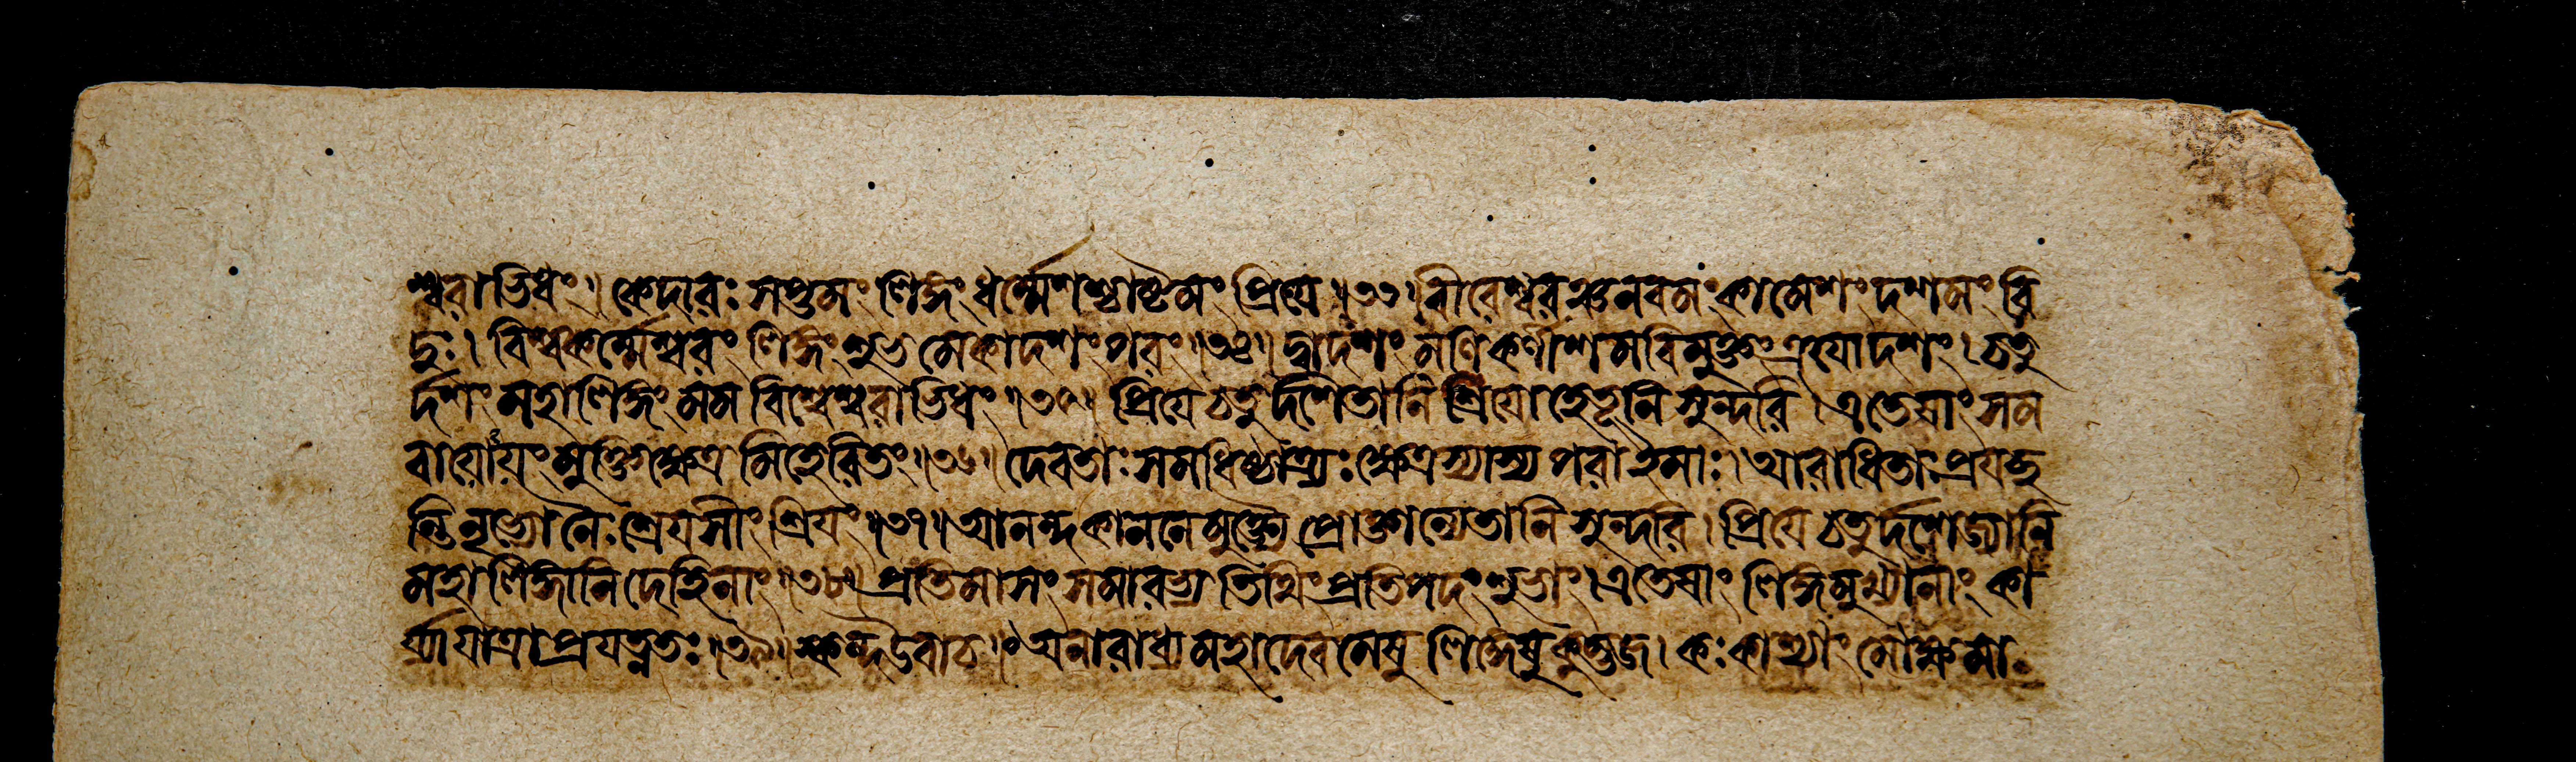 শ্বরাভিধং। কেদারঃ সপ্তমং লিঙ্গং ধর্ম্মেশশ্চাষ্টমং প্রিয়ে॥৩৩॥বীরেশ্বরঞ্চনবমংকামেশংদশমংবি
দুঃ। বিশ্বকর্ম্মেশ্বরং লিঙ্গংশুভমেকাদশংপরং॥৩৪॥দ্বাদশংমণিকর্ণীশমবিমুক্তংত্রয়োদশং।চতু
র্দশংমহালিঙ্গংমমবিশ্বেশ্বরাভিধং॥৩৫॥ প্রিয়েচতুর্দশৈতানিশ্রিয়োহেতূনিসুন্দরি।এতেষাংসম
বায়োয়ংমুক্তিক্ষেত্রমিহেরিতং॥৩৬॥দেবতাঃসমধিষ্ঠাত্র্যঃক্ষেত্রস্যাস্যপরাইমাঃ।আরাধিতাঃপ্রযচ্ছ
ন্তিনৃভ্যোনৈঃশ্রেয়সীংশ্রিয়ং॥৩৭॥আনন্দকাননেমুক্ত্যৈপ্রোক্তান্যেতানিসুন্দরি।প্রিয়েচতুর্দশেজ্যানি
মহালিঙ্গানিদেহিনাং॥৩৮॥প্রতিমাসংসমারভ্যতিথিংপ্রতিপদংশুভাং।এতেষাংলিঙ্গমুখ্যানাংকা
র্য্যাযাত্রাপ্রযত্নতঃ॥৩৯॥স্কন্দউবাচ।অনারাধ্যমহাদেবমেষুলিঙ্গেষুকুম্ভজ।কঃকাশ্যাংমোক্ষমা